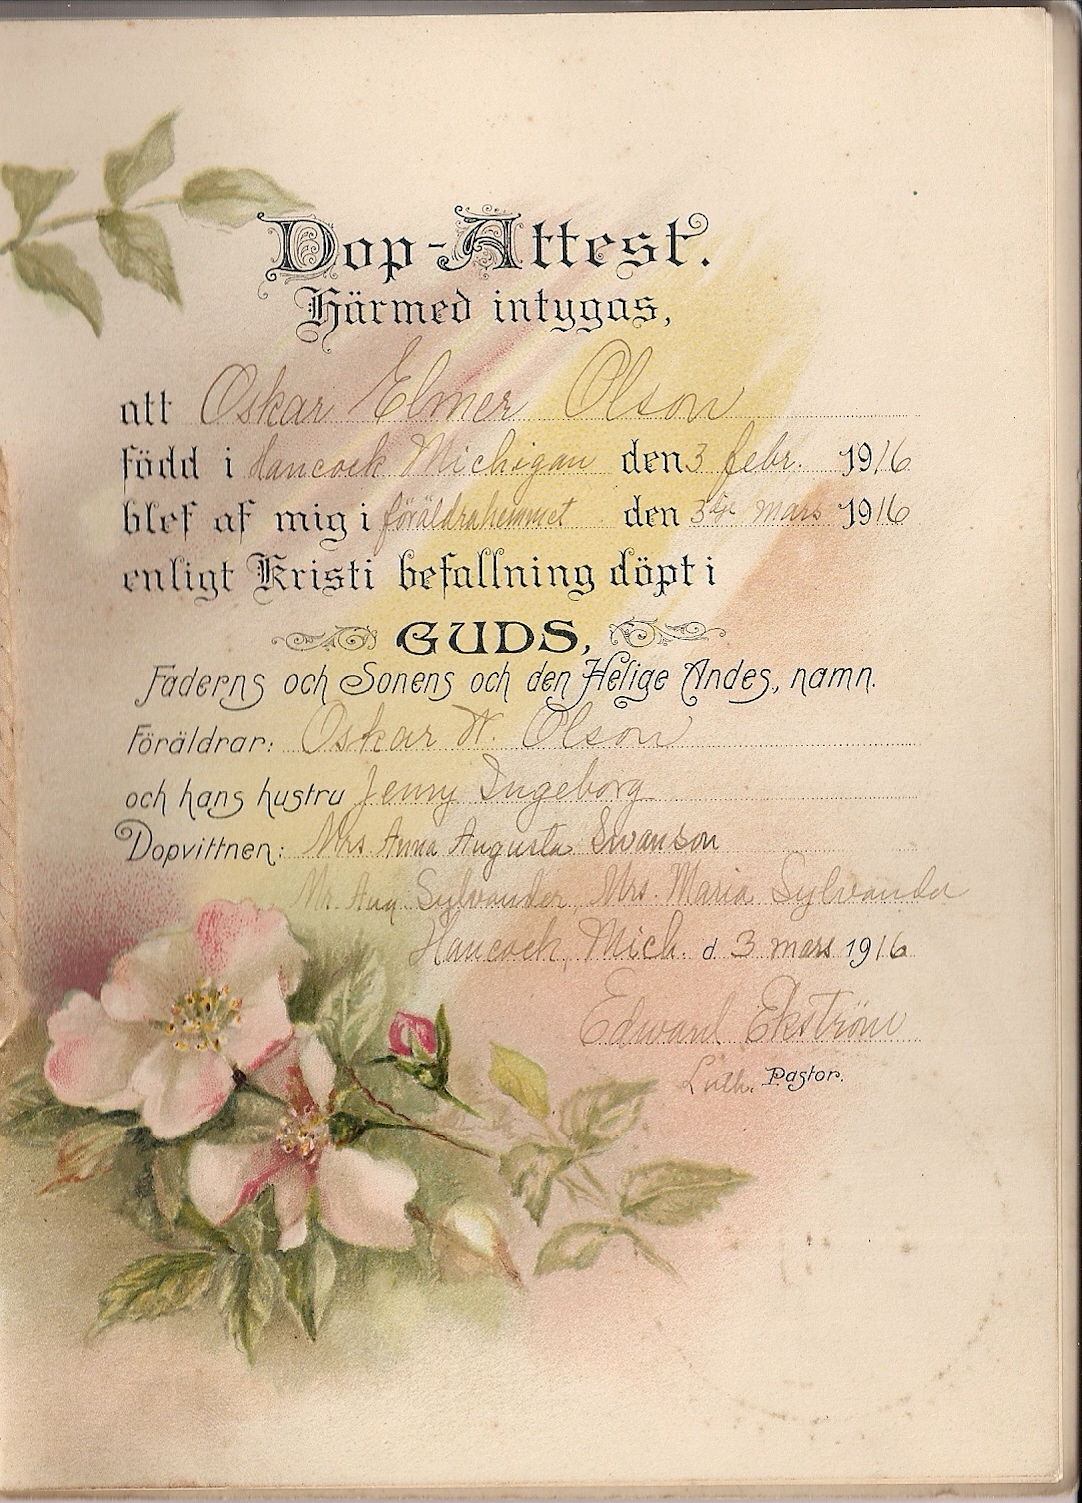 Dop-Attest.
Härmed intygas,
att Oskar Elmer Olson
född i Hancock Michigan den 3 febr. 1916
blef af mig i föräldrahemmet den 3dje mars 1916
enligt Kristi befallning döpt i
GUDS,
Faderns och Sonens och den Helige Andes, namn.
Föräldrar: Oskar W. Olson
och hans hustru Jenny Ingeborg
Dopvittnen: Mrs Anna Augusta Swanson
Mr. Aug. Sylvander, Mrs. Maria Sylvander
Hancock, Mich. d. 3 mars 1916
Edward Ekström
Luth. Pastor.